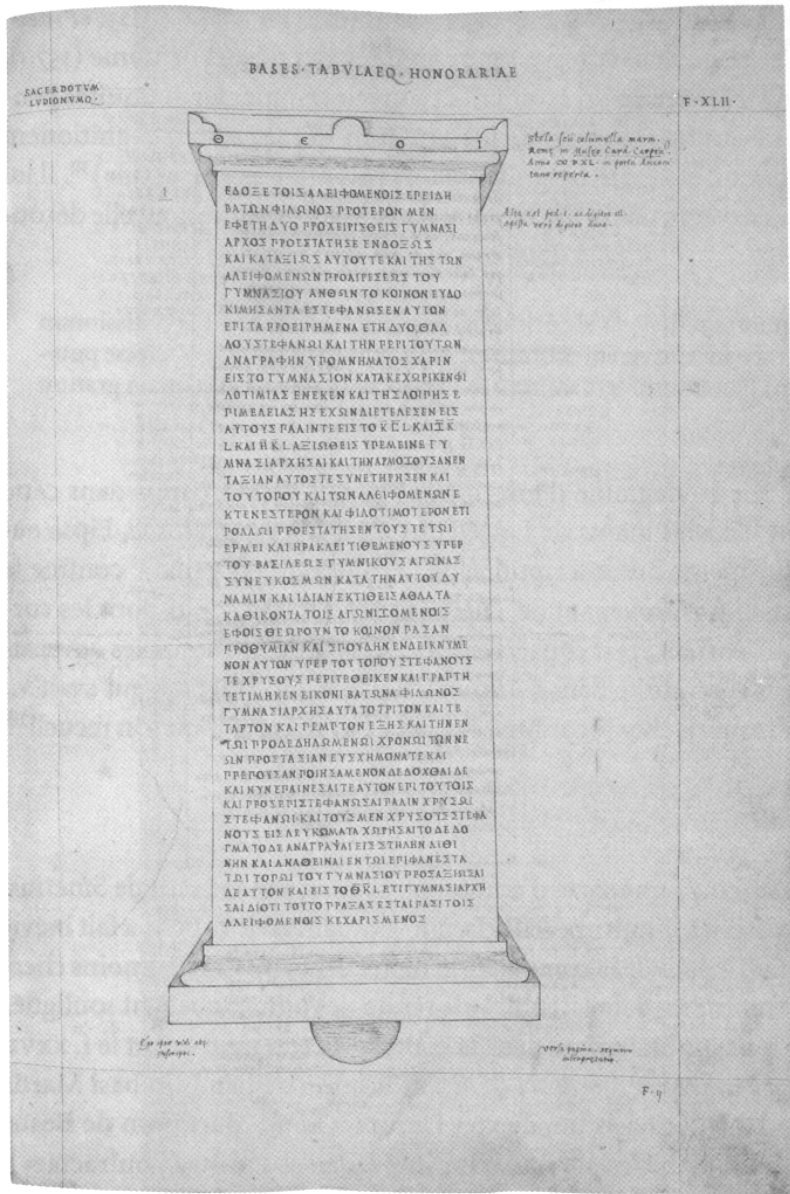 BASES · TABVLAEQ · HONORARIAE
SACERDOTVM
LVDIONVMQ ·
F · XLII ·
Θ Ε Ο Ι
stela seu columella marm.
Romae in Museo Card. Carpen.
Anno
reperta .
1
ΕΔΟΞΕ ΤΟΙΣ ΑΛΕΙΦΟΜΕΝΟΙΣ ΕΠΕΙΔΗ
ΒΑΤΩΝ ΦΙΛΩΝΟΣ ΠΡΟΤΕΡΟΝ ΜΕΝ
ΕΦ ΕΤΗ ΔΥΟ ΠΡΟΧΕΙΡΙΣΘΕΙΣ ΓΥΜΝΑΣΙ
ΑΡΧΟΣ ΠΡΟΕΣΤΑΤΗΣΕ ΕΝΔΟΞΩΣ
ΚΑΙ ΚΑΤΑΞΙΩΣ ΑΥΤΟΥ ΤΕ ΚΑΙ ΤΗΣ ΤΩΝ
ΑΛΕΙΦΟΜΕΝΩΝ ΠΡΟΑΙΡΕΣΕΩΣ ΤΟΥ
ΓΥΜΝΑΣΙΟΥ ΑΝΘΩΝ ΤΟ ΚΟΙΝΟΝ ΕΥΔΟ
ΚΙΜΗΣΑΝΤΑ ΕΣΤΕΦΑΝΩΣΕΝ ΑΥΤΟΝ
ΕΠΙ ΤΑ ΠΡΟΕΙΡΗΜΕΝΑ ΕΤΗ ΔΥΟ, ΘΑΛ
ΛΟΥ ΣΤΕΦΑΝΩΙ ΚΑΙ ΤΗΝ ΠΕΡΙ ΤΟΥΤΩΝ
ΑΝΑΓΡΑΦΗΝ ΥΠΟΜΝΗΜΑΤΟΣ ΧΑΡΙΝ
ΕΙΣ ΤΟ ΓΥΜΝΑΣΙΟΝ ΚΑΤΑΚΕΧΩΡΙΚΕΝ ΦΙ
ΛΟΤΙΜΙΑΣ ΕΝΕΚΕΝ ΚΑΙ ΤΗΣ ΛΟΙΠΗΣ Ε
ΠΙΜΕΛΕΙΑΣ ΗΣ ΕΧΩΝ ΔΙΕΤΕΛΕΣΕΝ ΕΙΣ
ΑΥΤΟΥΣ ΠΑΛΙΝ ΤΕ ΕΙΣ ΤΟ Κ̄Ϛ̄ L ΚΑΙ Ζ̄Κ̄
L ΚΑΙ Η̄Κ̄ L ΑΞΙΩΘΕΙΣ ΥΠΕΜΕΙΝΕ ΓΥ
ΜΝΑΣΙΑΡΧΗΣΑΙ ΚΑΙ ΤΗΝ ΑΡΜΟΖΟΥΣΑΝ ΕΝ
ΤΑΞΙΑΝ ΑΥΤΟΣ ΤΕ ΣΥΝΕΤΗΡΗΣΕΝ ΚΑΙ
ΤΟΥ ΤΟΠΟΥ ΚΑΙ ΤΩΝ ΑΛΕΙΦΟΜΕΝΩΝ Ε
ΚΤΕΝΕΣΤΕΡΟΝ ΚΑΙ ΦΙΛΟΤΙΜΟΤΕΡΟΝ ΕΤΙ
ΠΟΛΛΩΙ ΠΡΟΕΣΤΑΤΗΣΕΝ ΤΟΥΣ ΤΕ ΤΩΙ
ΕΡΜΕΙ ΚΑΙ ΗΡΑΚΛΕΙ ΤΙΘΕΜΕΝΟΥΣ ΥΠΕΡ
ΤΟΥ ΒΑΣΙΛΕΩΣ ΓΥΜΝΙΚΟΥΣ ΑΓΩΝΑΣ
ΣΥΝΕΥΚΟΣΜΩΝ ΚΑΤΑ ΤΗΝ ΑΥΤΟΥ ΔΥ
ΝΑΜΙΝ ΚΑΙ ΙΔΙΑΝ ΕΚΤΙΘΕΙΣ ΑΘΛΑ ΤΑ
ΚΑΘΙΚΟΝΤΑ ΤΟΙΣ ΑΓΩΝΙΖΟΜΕΝΟΙΣ
ΕΦ ΟΙΣ ΘΕΩΡΟΥΝ ΤΟ ΚΟΙΝΟΝ ΠΑΣΑΝ
ΠΡΟΘΥΜΙΑΝ ΚΑΙ ΣΠΟΥΔΗΝ ΕΝΔΕΙΚΝΥΜΕ
ΝΟΝ ΑΥΤΟΝ ΥΠΕΡ ΤΟΥ ΤΟΠΟΥ ΣΤΕΦΑΝΟΥΣ
ΤΕ ΧΡΥΣΟΥΣ ΠΕΡΙΤΕΘΕΙΚΕΝ ΚΑΙ ΓΡΑΠΤΗ
ΤΕΤΙΜΗΚΕΝ ΕΙΚΟΝΙ ΒΑΤΩΝΑ ΦΙΛΩΝΟΣ
ΓΥΜΝΑΣΙΑΡΧΗΣΑΥΤΑ ΤΟ ΤΡΙΤΟΝ ΚΑΙ ΤΕ
ΤΑΡΤΟΝ ΚΑΙ ΠΕΜΠΤΟΝ ΕΞΗΣ ΚΑΙ ΤΗΝ ΕΝ
ΤΩΙ ΠΡΟΔΕΔΗΛΩΜΕΝΩΙ ΧΡΟΝΩΙ ΤΩΝ ΝΕ
ΩΝ ΠΡΟΣΤΑΣΙΑΝ ΕΥΣΧΗΜΟΝΑ ΤΕ ΚΑΙ
ΠΡΕΠΟΥΣΑΝ ΠΟΙΗΣΑΜΕΝΟΝ ΔΕΔΟΧΘΑΙ ΔΕ
ΚΑΙ ΝΥΝ ΕΠΑΙΝΕΣΑΙ ΤΕ ΑΥΤΟΝ ΕΠΙ ΤΟΥΤΟΙΣ
ΚΑΙ ΠΡΟΣΕΠΙΣΤΕΦΑΝΩΣΑΙ ΠΑΛΙΝ ΧΡΥΣΩΙ
ΣΤΕΦΑΝΩΙ ΚΑΙ ΤΟΥΣ ΜΕΝ ΧΡΥΣΟΥΣ ΣΤΕΦΑ
ΝΟΥΣ ΕΙΣ ΛΕΥΚΩΜΑΤΑ ΧΩΡΗΣΑΙ ΤΟ ΔΕ ΔΟ
ΓΜΑ ΤΟΔΕ ΑΝΑΓΡΑΨΑΙ ΕΙΣ ΣΤΗΛΗΝ ΛΙΘΙ
ΝΗΝ ΚΑΙ ΑΝΑΘΕΙΝΑΙ ΕΝ ΤΩΙ ΕΠΙΦΑΝΕΣΤΑ
ΤΩΙ ΤΟΠΩΙ ΤΟΥ ΓΥΜΝΑΣΙΟΥ ΠΡΟΣΑΞΙΩΣΑΙ
ΔΕ ΑΥΤΟΝ ΚΑΙ ΕΙΣ ΤΟ Θ̄Κ̄ L ΕΤΙ ΓΥΜΝΑΣΙΑΡΧΗ
ΣΑΙ ΔΙΟΤΙ ΤΟΥΤΟ ΠΡΑΞΑΣ ΕΣΤΑΙ ΠΑΣΙ ΤΟΙΣ
ΑΛΕΙΦΟΜΕΝΟΙΣ ΚΕΧΑΡΙΣΜΕΝΟΣ
Ego ipse vidi atq.
interpretatio.
F · ij